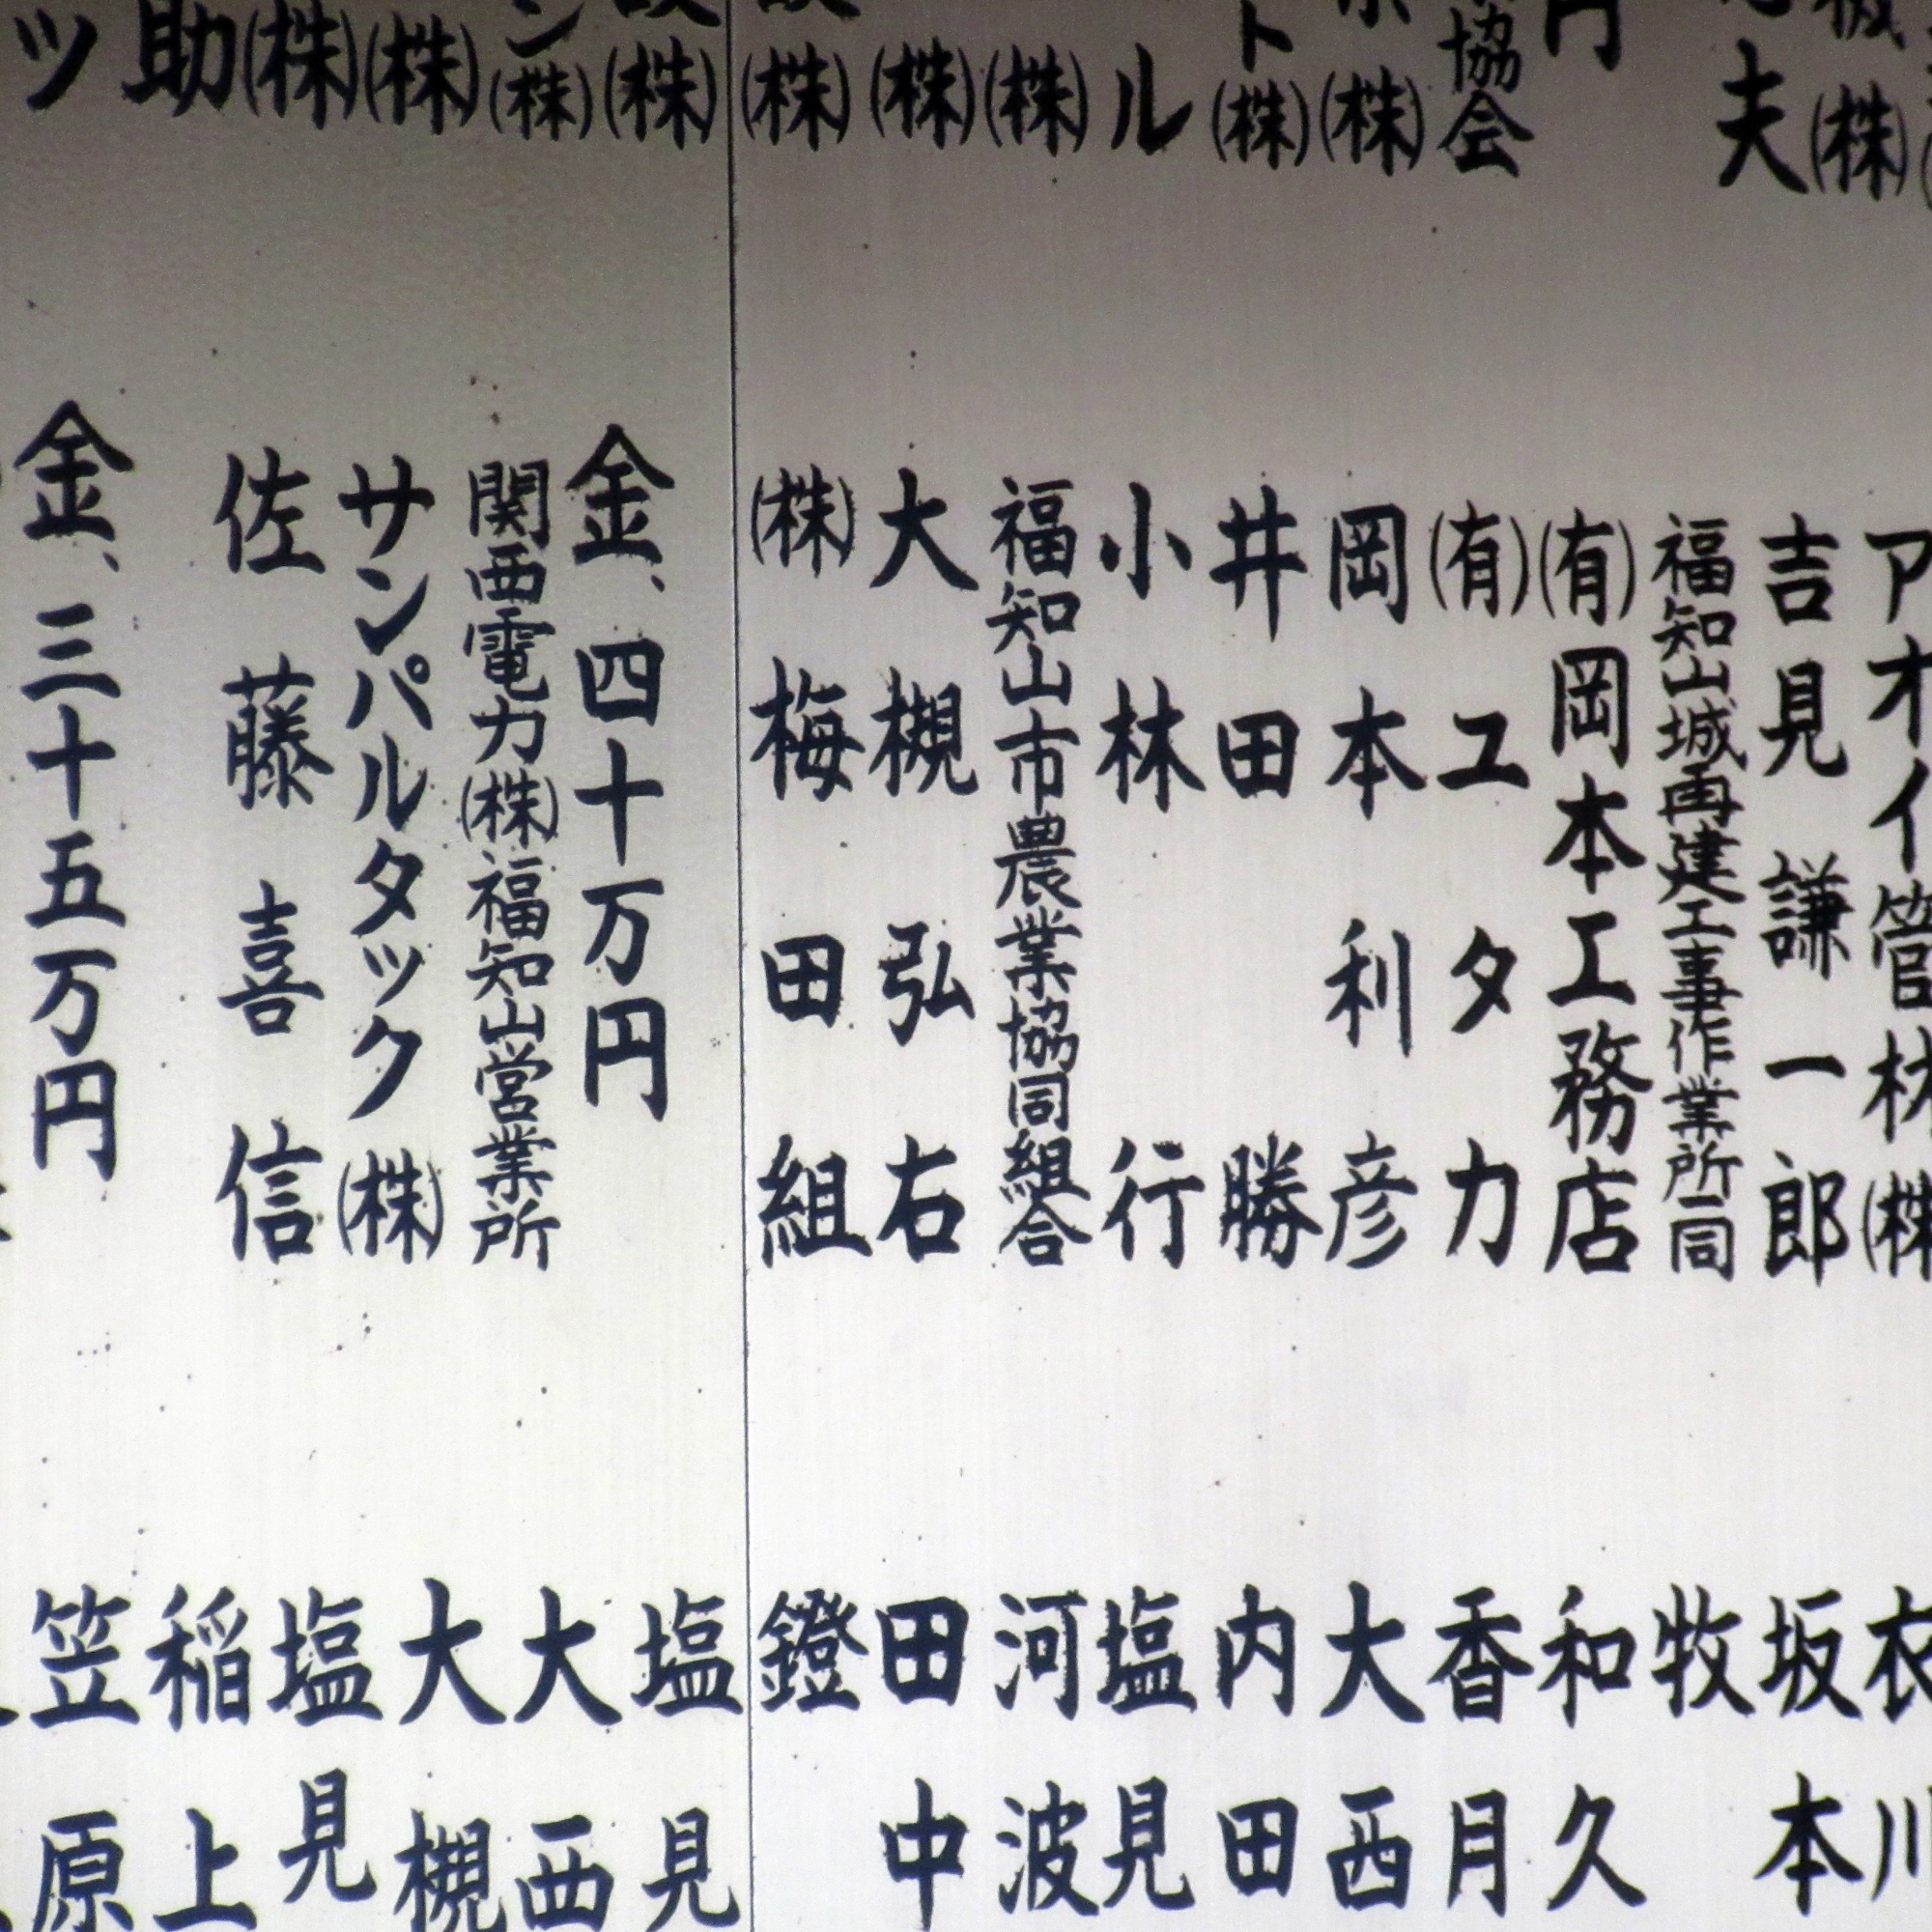 夫
協会
(株)
ト(株)
ル
(株)
(株)
(株)
(株)
ン(株)
(株)
(株)
助
ッ
アオイ管材(株)
吉見謙一郎
福知山城再建工事作業所一同
(有)岡本工務店
(有)ユタカ
岡本利彦
井田勝
小林行
福知山市農業協同組合
大槻弘右
(株)梅田組
金、四十万円
関西電力(株)福知山営業所
サンパルタック(株)
佐藤喜信
金、三十五万円
衣川
坂本
牧
和久
香月
大西
内田
塩見
河波
田中
鐙
塩見
大西
大槻
塩見
稲上
笠原